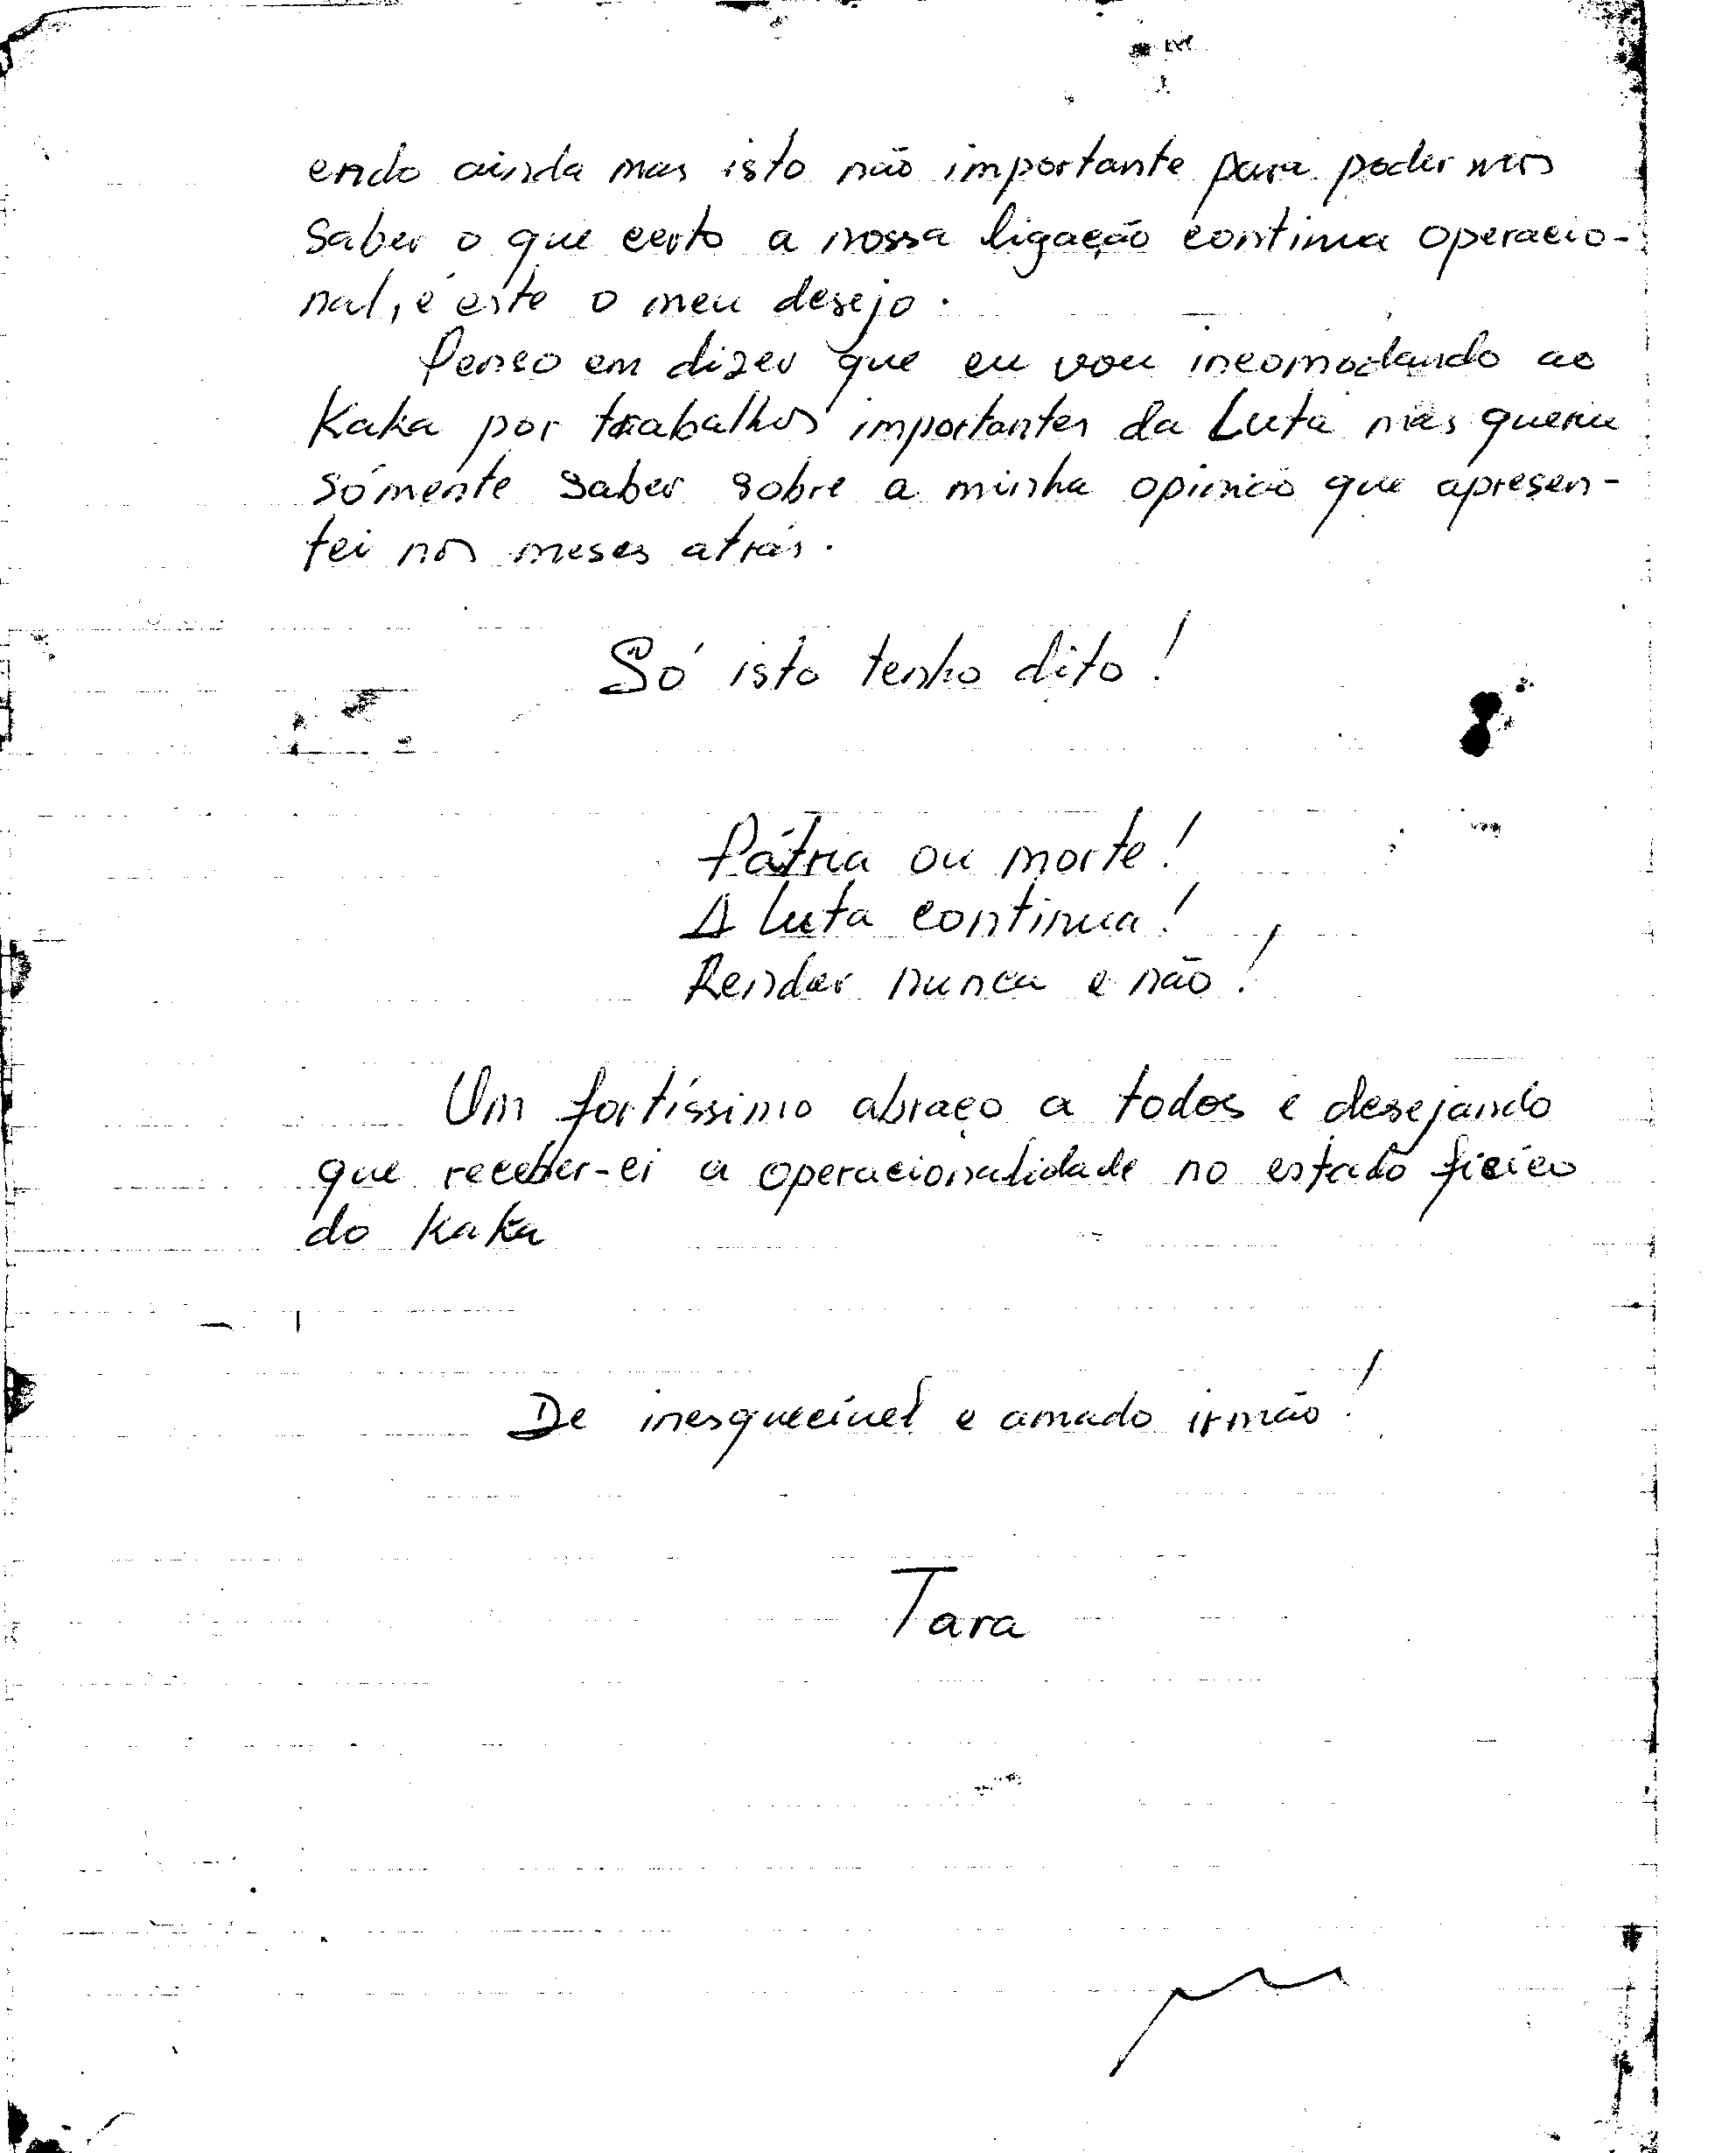 endo ainda mas isto não importante para podermos
saber o que certo a nossa ligação continua operacio-
nal, é este o meu desejo.
Penso em dizer que eu vou incomodando ao
Kaka por trabalhos importantes da Luta mas queria
sómente saber sobre a minha opinião que apresen-
tei nos meses atrás.
Só isto tenho dito!
Pátria ou morte!
A luta continua!
Render nunca e não!
Um fortíssimo abraço a todos e desejando
que receber-ei a operacionalidade no estado físico
do Kaka
De inesquecível e amado irmão!
Tara